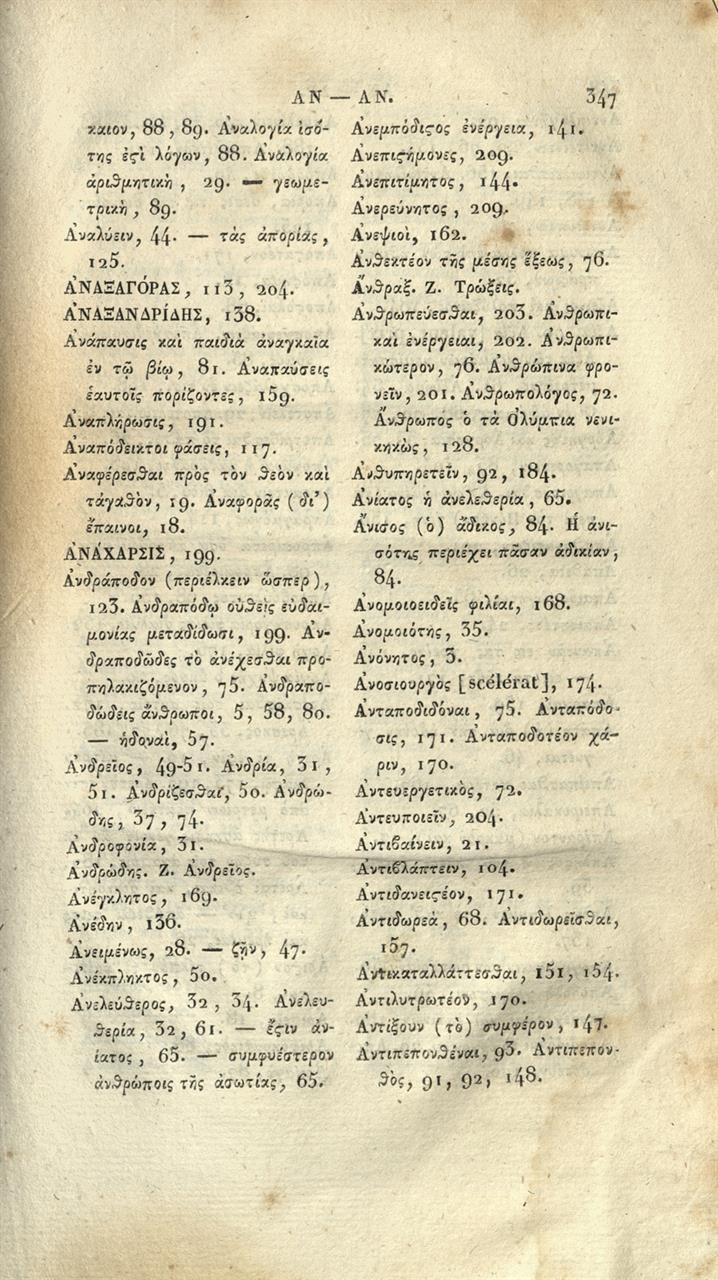 ΑΝ — ΑΝ. 347
καιον, 88, 89. Ἀναλογία ἰσό-
της ἐϛὶ λόγων, 88. Ἀναλογία
ἀριθμητικὴ, 29. — γεωμε-
τρικὴ, 89.
Ἀναλύειν, 44. — τὰς ἀπορίας,
125.
ἈΝΑΞΑΓΌΡΑΣ, 113, 204.
ἈΝΑΞΑΝΔΡΊΔΗΣ, 138.
Ἀνάπαυσις καὶ παιδιὰ ἀναγκαῖα
ἐν τῷ βίῳ, 81. Ἀναπαύσεις
ἑαυτοῖς πορίζοντες, 159.
Ἀναπλήρωσις, 191.
Ἀναπόδεικτοι φάσεις, 117.
Ἀναφέρεσθαι πρὸς τὸν θεὸν καὶ
τἀγαθὸν, 19. Ἀναφορᾶς (δι’)
ἔπαινοι, 18.
ἈΝΆΧΑΡΣΙΣ, 199.
Ἀνδράποδον (περιέλκειν ὥσπερ),
123. Ἀνδραπόδῳ οὐθεὶς εὐδαι-
μονίας μεταδίδωσι, 199. Ἀν-
δραποδῶδες τὸ ἀνέχεσθαι προ-
πηλακιζόμενον, 75. Ἀνδραπο-
δώδεις ἄνθρωποι, 5, 58, 80.
— ἡδοναὶ, 57.
Ἀνδρεῖος, 49-51. Ἀνδρία, 31,
51. Ἀνδρίζεσθαι, 50. Ἀνδρώ-
δης, 37, 74.
Ἀνδροφονία, 31.
Ἀνδρώδης. Ζ. Ἀνδρεῖος.
Ἀνέγκλητος, 169.
Ἀνέδην, 136.
Ἀνειμένως, 28. — ζῇν, 47.
Ἀνέκπληκτος, 50.
Ἀνελεύθερος, 32, 34. Ἀνελευ-
θερία, 32, 61. — ἔϛιν ἀν-
ίατος, 65. — συμφυέστερον
ἀνθρώποις τῆς ἀσωτίας, 65.
Ἀνεμπόδιϛος ἐνέργεια, 141.
Ἀνεπιϛήμονες, 209.
Ἀνεπιτίμητος, 144.
Ἀνερεύνητος, 209.
Ἀνεψιοὶ, 162.
Ἀνθεκτέον τῆς μέσης ἕξεως, 76.
Ἄνθραξ. Ζ. Τρώξεις.
Ἀνθρωπεύεσθαι, 203. Ἀνθρωπι-
καὶ ἐνέργειαι, 202. Ἀνθρωπι-
κώτερον, 76. Ἀνθρώπινα φρο-
νεῖν, 201. Ἀνθρωπολόγος, 72.
Ἄνθρωπος ὁ τὰ Ὀλύμπια νενι-
κηκὼς, 128.
Ἀνθυπηρετεῖν, 92, 184.
Ἀνίατος ἡ ἀνελεθερία, 65.
Ἄνισος (ὁ) ἄδικος, 84. Ἡ ἀνι-
σότης περιέχει πᾶσαν ἀδικίαν,
84.
Ἀνομοιοειδεῖς φιλίαι, 168.
Ἀνομοιότης, 35.
Ἀνόνητος, 3.
Ἀνοσιουργὸς [scélérat], 174.
Ἀνταποδιδόναι, 75. Ἀνταπόδο-
σις, 171. Ἀνταποδοτέον χά-
ριν, 170.
Ἀντευεργετικὸς, 72.
Ἀντευποιεῖν, 204.
Ἀντιβαίνειν, 21.
Ἀντιβλάπτειν, 104.
Ἀντιδανειϛέον, 171.
Ἀντιδωρεὰ, 68. Ἀντιδωρεῖσθαι,
157.
Ἀντικαταλλάττεσθαι, 151, 154.
Ἀντιλυτρωτέον, 170.
Ἀντίξουν (τὸ) συμφέρον, 147.
Ἀντιπεπονθέναι, 93. Ἀντιπεπον-
θὸς, 91, 92, 148.